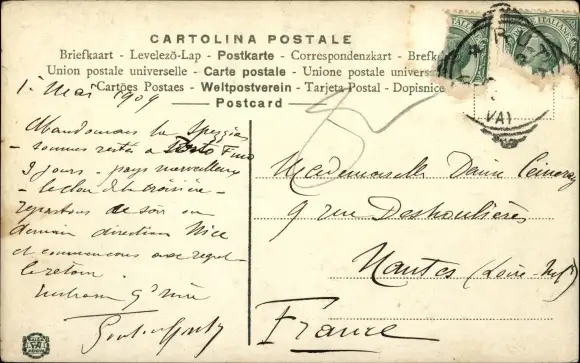 CARTOLINA POSTALE
Briefkaart - Levelezö-Lap - Postkarte - Correspondenzkart - Brefko
Union postale universelle - Carte postale - Unione postale universa
Cartões Postaes - Weltpostverein - Tarjeta Postal - Dopisnice
Postcard
1. Mai 1909
Abandonnons la Spezzia
- sommes restés a Porto Fino
3 jours - pays merveilleux
- le clou de la croisière -
repartons ce soir ou
demain direction Nice
et commencons avec regret
le retour.
Mademoiselle
9 rue Deshoulières
Nantes (Loire-Inf)
France